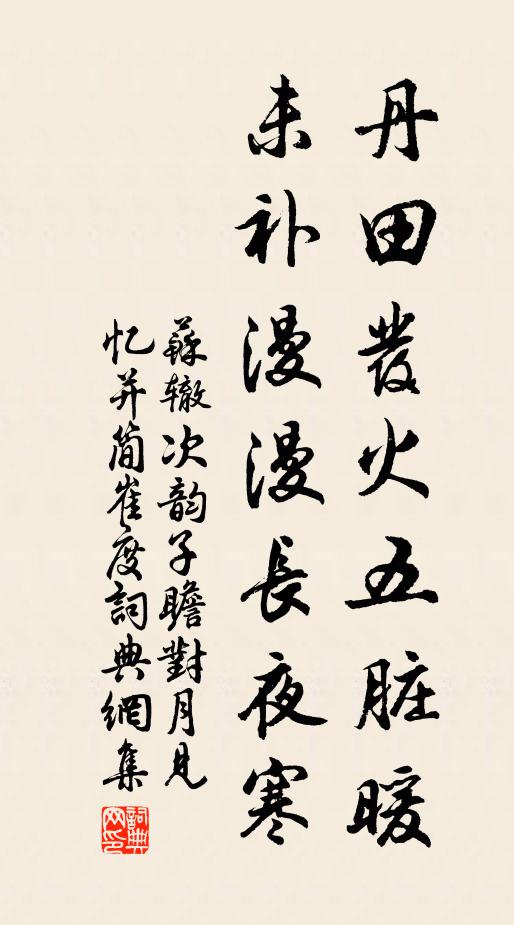 丹田發火五脏暖
未补漫漫長夜寒
蘇辙次韵子瞻對月見
忆并简崔度詞典網集
詞典网印